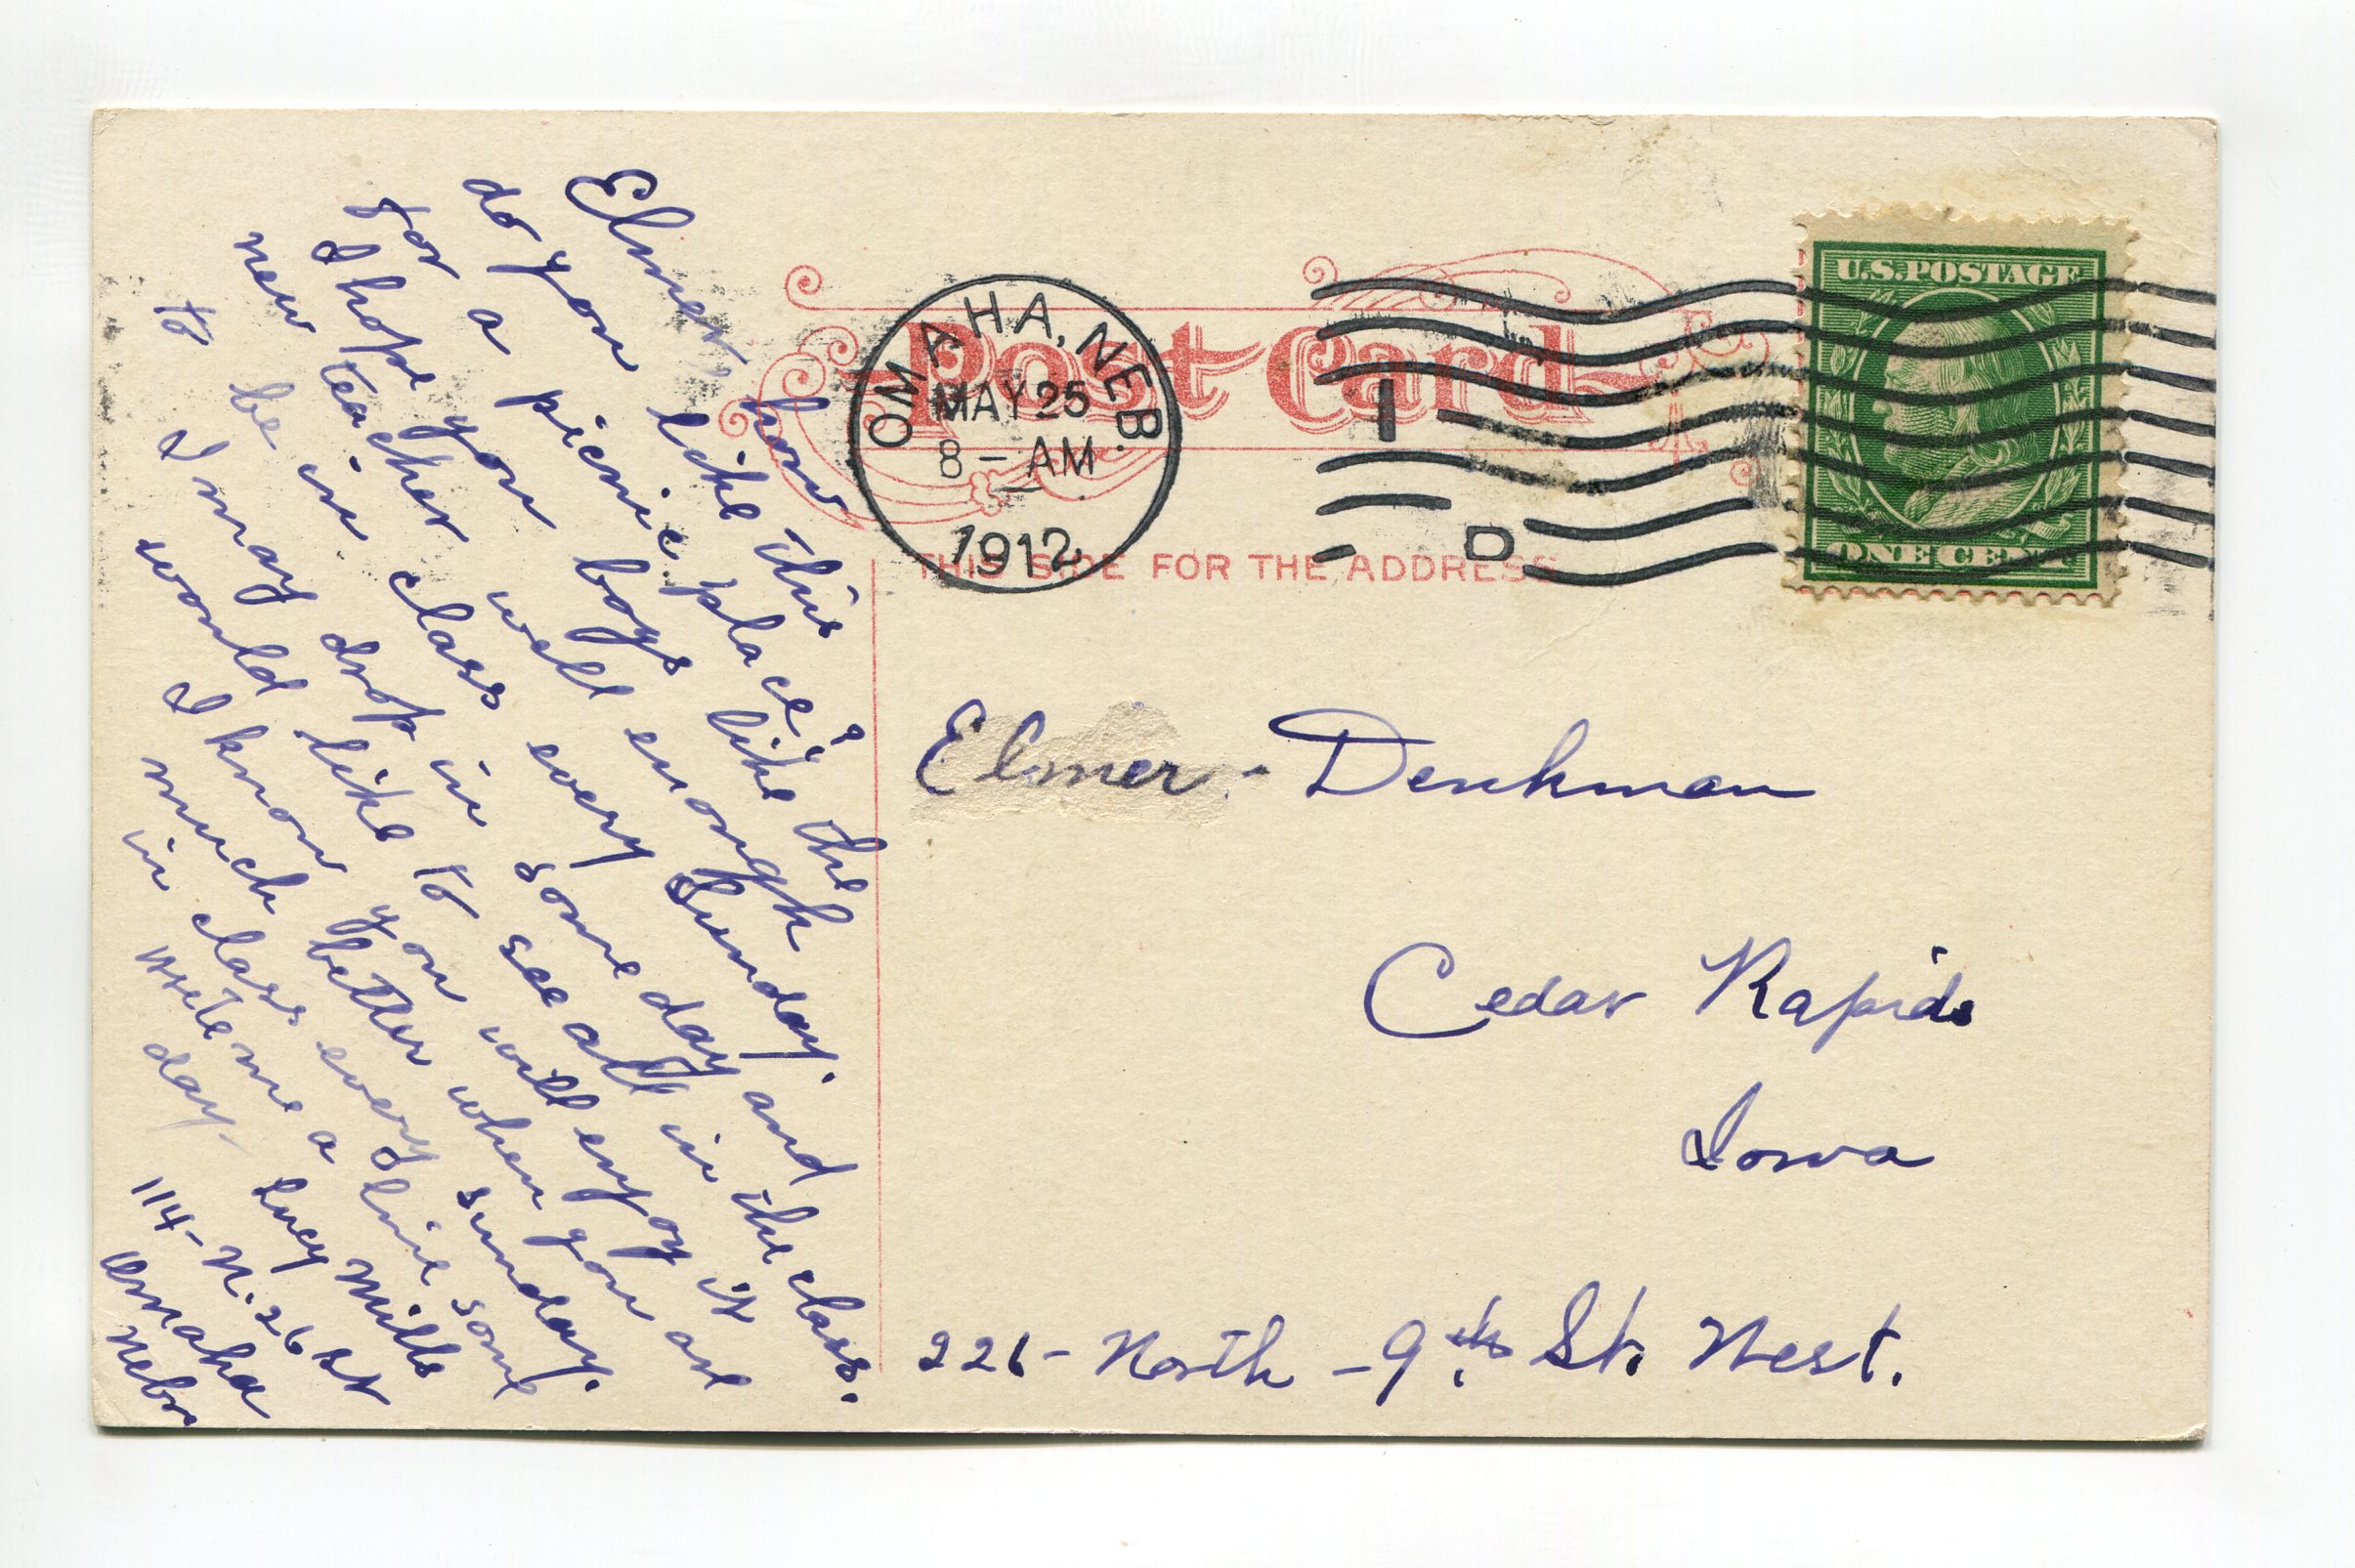 Elmer, how
do you like this
for a picnic place?
I hope you boys like the
new teacher well enough
to be in class every Sunday.
I may drop in some day and
would like to see all in the class.
I know you will enjoy it
much better when you are
in class every Sunday.
Write me a line some
day- Lucy Mills
114- N. 26 St
Omaha
Nebr
Post Card
OMAHA, NEB.
MAY 25
8 - AM
1912
1
D
U.S. POSTAGE
ONE CENT
THIS SIDE FOR THE ADDRESS
Elmer - Denkman
Cedar Rapids
Iowa
226- North - 9th St. West.